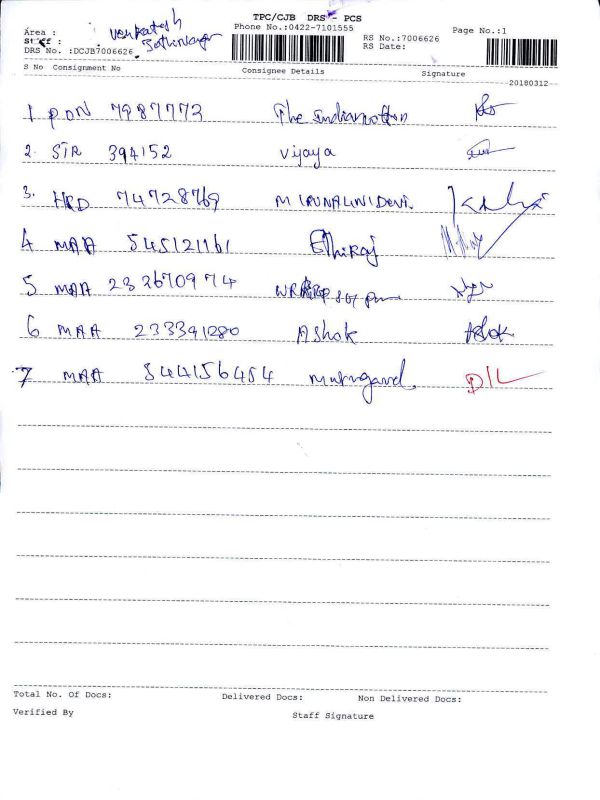 TPC/CJB DRS - PCS
Area : Venkatesh
Phone No.:0422-7101555
Page No.:1
Staff :
RS No.:7006626
DRS No. :DCJB7006626
RS Date:
S No Consignment No Consignee Details Signature
20180312
1 PON 7987773 The
2. STR 394152 Vijaya
3. HRD 74728769 MIRUNALINIDEVI.
4 MAA 545121161 Ethiraj
5 MAA 233670974
6 MAA 233391280 Ashok Ashok
7 MAA 544156454 D/L
Total No. Of Docs: Delivered Docs: Non Delivered Docs:
Verified By Staff Signature